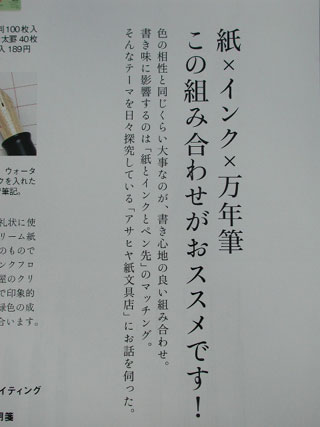 紙×インク×万年筆
この組み合わせがおススメです!
色の相性と同じくらい大事なのが、書き心地の良い組み合わせ。
書き味に影響するのは「紙とインクとペン先」のマッチング。
そんなテーマを日々探究している「アサヒヤ紙文具店」にお話を伺った。
判100枚入
太罫40枚
入 189円
ウォータ
クを入れた
筆記。
礼状に使
リーム紙
のもので
ンクフロ
屋のクリ
で印象的
緑色の成
合います。
イティング
用箋